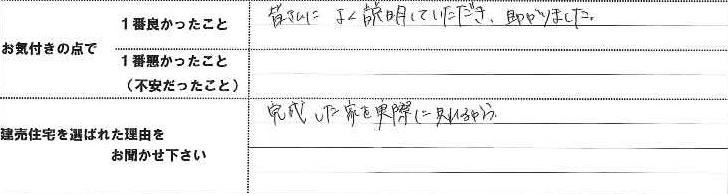 お気付きの点で
1番良かったこと
皆さんに よく説明していただき、助かりました。
1番悪かったこと
(不安だったこと)
建売住宅を選ばれた理由を
お聞かせ下さい
完成した家を実際に見れるから